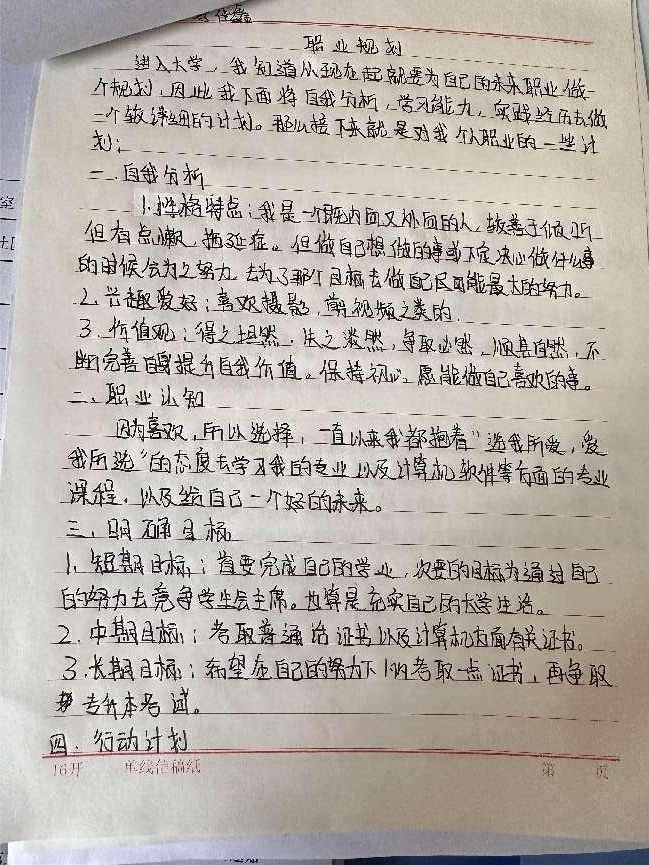 职业规划
进入大学，我知道从现在起就要为自己的未来职业做一
个规划，因此我下面将自我分析，学习能力，实践经历去做
一个较详细的计划。那么接下来就是对我个人职业的一些计
划：
一、自我分析
1.性格特点：我是一个既内向又外向的人，较善于倾听
但有点懒，拖延症。但做自己想做的事或下定决心做什么事
的时候会为之努力，去为了那个目标去做自己尽可能最大的努力。
2、兴趣爱好：喜欢摄影，剪视频之类的.
3、价值观：得之坦然，失之淡然，争取必然，顺其自然，不
断完善自身提升自我价值。保持初心，愿能做自己喜欢的事。
二、职业认知
因为喜欢，所以选择，一直以来我都抱着"选我所爱，爱
我所选"的态度去学习我的专业以及计算机软件等方面的专业
课程，以及给自己一个好的未来。
三、明确目标
1、短期目标：首要完成自己的学业，次要的目标为通过自己
的努力去竞争学生会主席。也算是充实自己的大学生活。
2、中期目标：考取普通话证书以及计算机方面有关证书。
3、长期目标：希望在自己的努力下，考取一点证书，再争取
专升本考试。
四、行动计划
16开 单线信稿纸 第 页